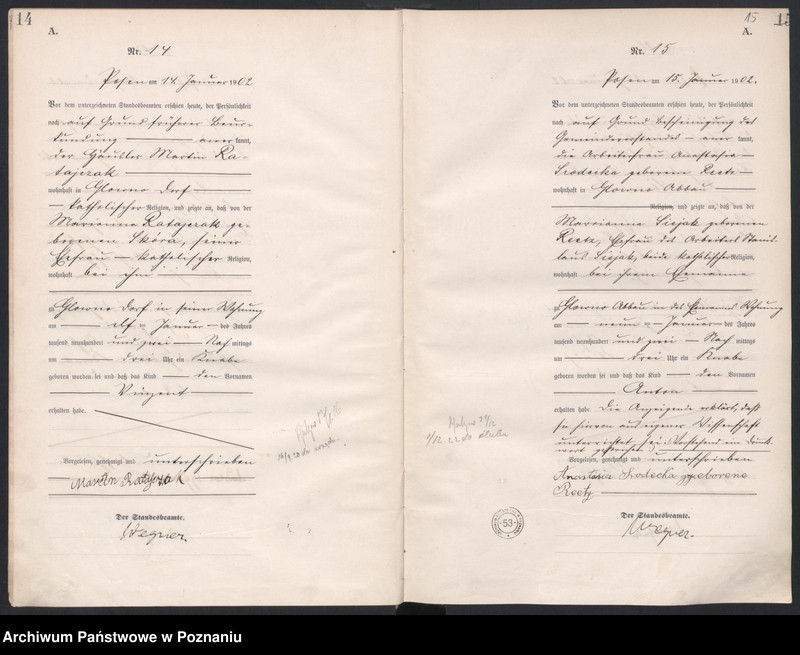 14
A.
Nr. 14
Posen am 14. Januar 1902
Vor dem unterzeichneten Standesbeamten erschien heute, der Persönlichkeit
nach auf Grund früherer Beur-
kundung — anerkannt,
der Häusler Martin Ra-
tajczak
wohnhaft in Glowno Dorf
katholischer Religion, und zeigte an, daß von der
Marianna Ratajczak ge-
borenen Skóra, seiner
Ehefrau — katholischer Religion,
wohnhaft bei ihm
zu Glowno Dorf in seiner Wohnung
am — elf ten Januar des Jahres
tausend neunhundert und zwei — Nach mittags
um — drei Uhr ein Knabe
geboren worden sei und daß das Kind — den Vornamen
Vinzent
erhalten habe.
Vorgelesen, genehmigt und unterschrieben
Martin Ratajczak
Der Standesbeamte.
Wegner.
15
15
A.
Nr. 15
Posen am 15. Januar 1902.
Vor dem unterzeichneten Standesbeamten erschien heute, der Persönlichkeit
nach auf Grund Bescheinigung des
Gemeindevorstandes — anerkannt,
die Arbeiterfrau Anastasia
Srodecka geborene Reetz
wohnhaft in Glowno Abbau
Religion, und zeigte an, daß von der
Marianna Sisjak geborenen
Reetz, Ehefrau des Arbeiters Stanis-
laus Sisjak, beide katholischer Religion,
wohnhaft bei ihrem Ehemanne
zu Glowno Abbau in des Ehemannes Wohnung
am — neun ten Januar des Jahres
tausend neunhundert und zwei — Nach mittags
um — drei Uhr ein Knabe
geboren worden sei und daß das Kind — den Vornamen
Anton
erhalten habe. Die Anzeigende erklärt, daß
sie hiervon aus eigener Wissenschaft
unterrichtet sei. Vorstehend ein Druck-
wort gestrichen.
Vorgelesen, genehmigt und unterschrieben
Anastasia Srodecka geborene
Reetz
Der Standesbeamte.
Wegner.
53
Archiwum Państwowe w Poznaniu